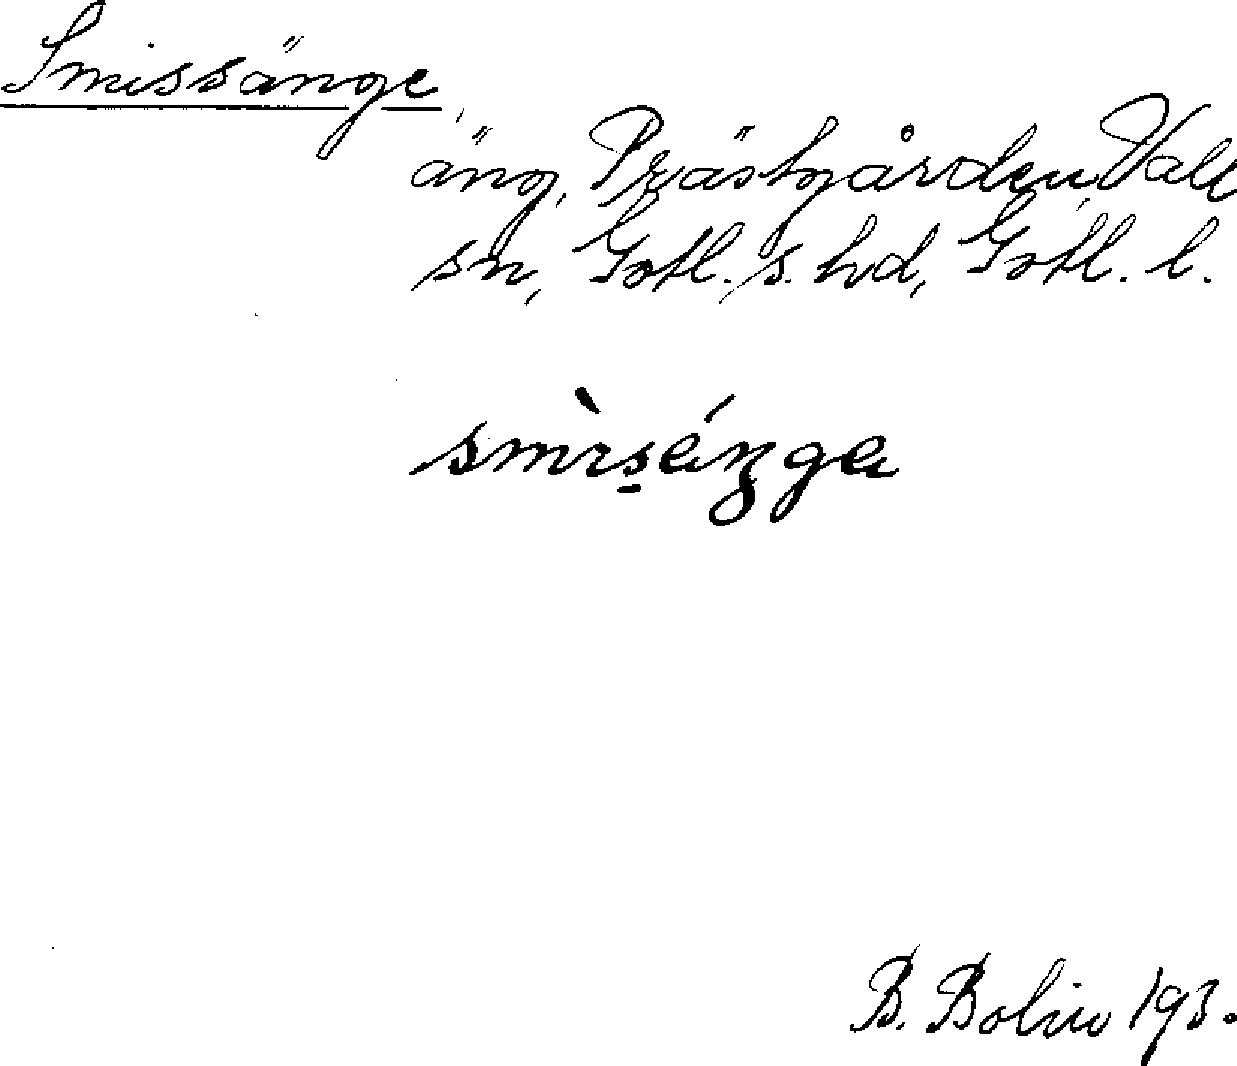 Smissänge,
äng, Prästgården, Vall
sn, Gotl. s. hd, Gotl. l.
B. Bolin 193.